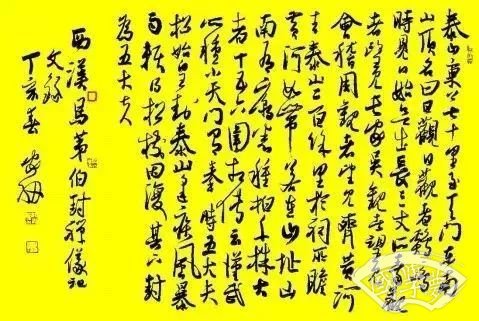 泰山東上七十里至天門東南
山頂名曰日觀日觀者鷄鳴
時見日始欲出長三丈所秦觀
者望見長安吳觀者望見
會稽周觀者望見齊黃河
去泰山二百餘里於祠所瞻
黃河如帶若在山址山
南有廟悉種柏千株大
者十五六圍相傳云漢武
所種小天門有秦時五大夫
松始皇封泰山逢疾風暴
雨賴得松樹因復其下封
為五大夫
西漢馬第伯封禪儀記
文錄
丁亥春